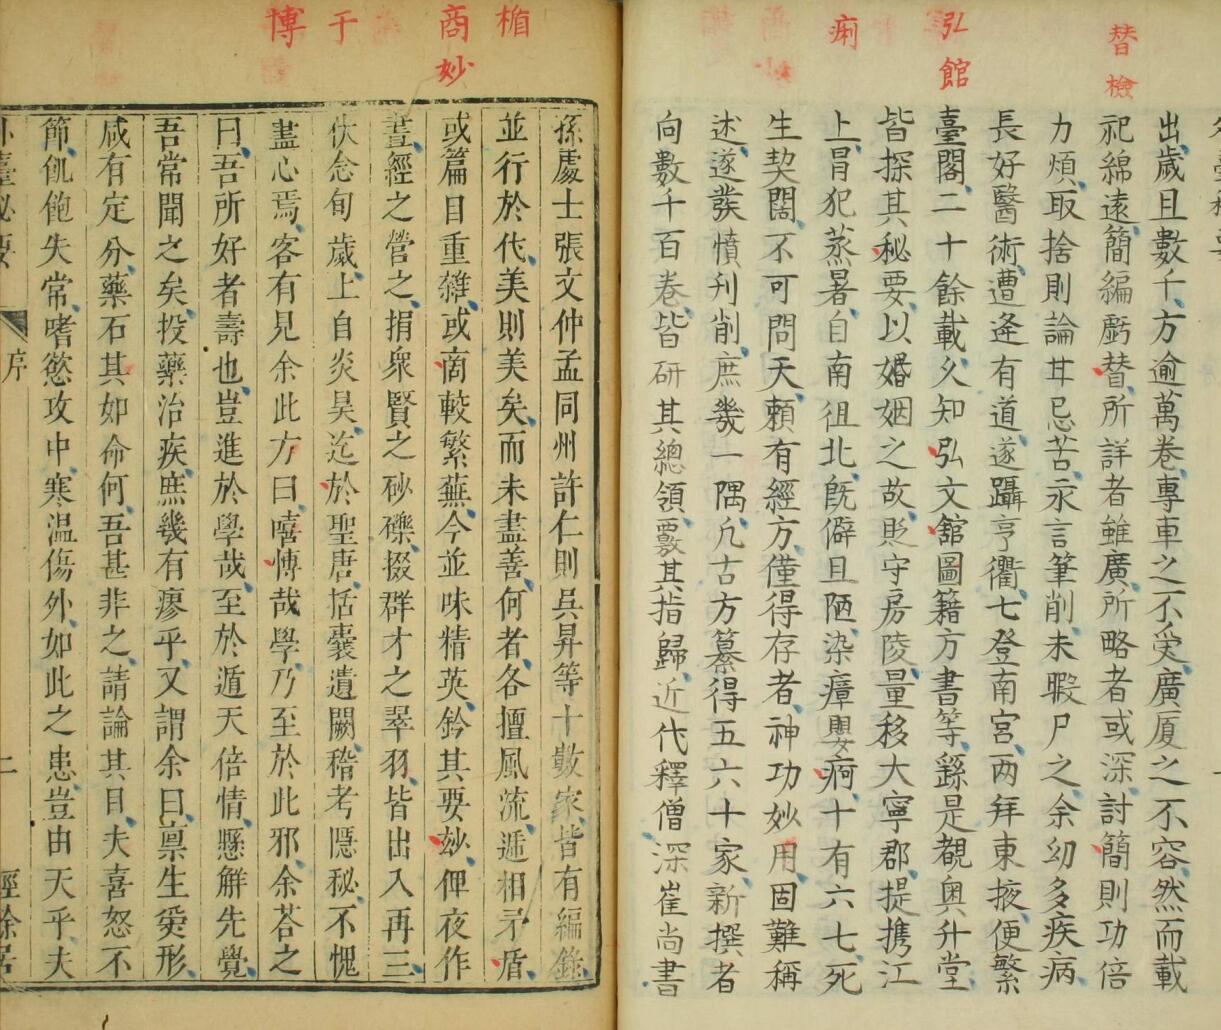 替檢
弘館
痾
出歲且數千方逾萬卷專車之不受廣厦之不容然而載
祀綿遠簡編虧替所詳者雖廣所略者或深討簡則功倍
力煩取捨則論甘忌苦永言筆削未暇尸之余幼多疾病
長好醫術遭逢有道遂躡亨衢七登南宮兩拜東掖便繁
臺閣二十餘載久知弘文館圖籍方書等繇是覩奥升堂
皆探其秘要以婚姻之故貶守房陵量移大寧郡提携江
上冒犯蒸暑自南徂北旣僻且陋染瘴嬰痾十有六七死
生契闊不可問天賴有經方僅得存者神功妙用固難稱
述遂發憤刊削庶幾一隅凢古方纂得五六十家新撰者
向數千百卷皆研其總領覈其指歸近代釋僧深崔尚書
楯
商妙
于
博
孫處士張文仲孟同州許仁則吳昇等十數家皆有編錄
並行於代美則美矣而未盡善何者各擅風流遞相矛盾
或篇目重雜或商較繁蕪今並味精英鈐其要妙俾夜作
晝經之營之捐衆賢之砂礫掇群才之翠羽皆出入再三
伏念旬歲上自炎昊迄於聖唐括囊遺闕稽考隱秘不愧
盡心焉客有見余此方曰嘻博哉學乃至於此邪余荅之
曰吾所好者壽也豈進於學哉至於遁天倍情懸解先覺
吾常聞之矣投藥治疾庶幾有瘳乎又謂余曰禀生受形
咸有定分藥石其如命何吾甚非之請論其目夫喜怒不
節飢飽失常嗜慾攻中寒温傷外如此之患豈由天乎夫
外臺秘要
序
二
經餘居